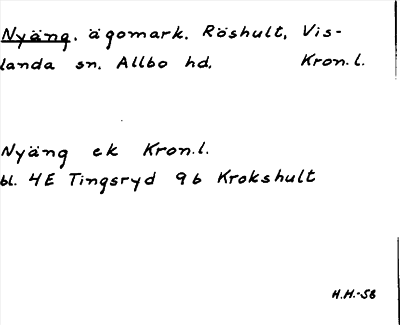 Nyäng. ägomark. Röshult, Vis-
landa sn. Allbo hd. Kron.l.
Nyäng ek Kron.l.
bl. 4E Tingsryd 9b Krokshult
H.H.-58